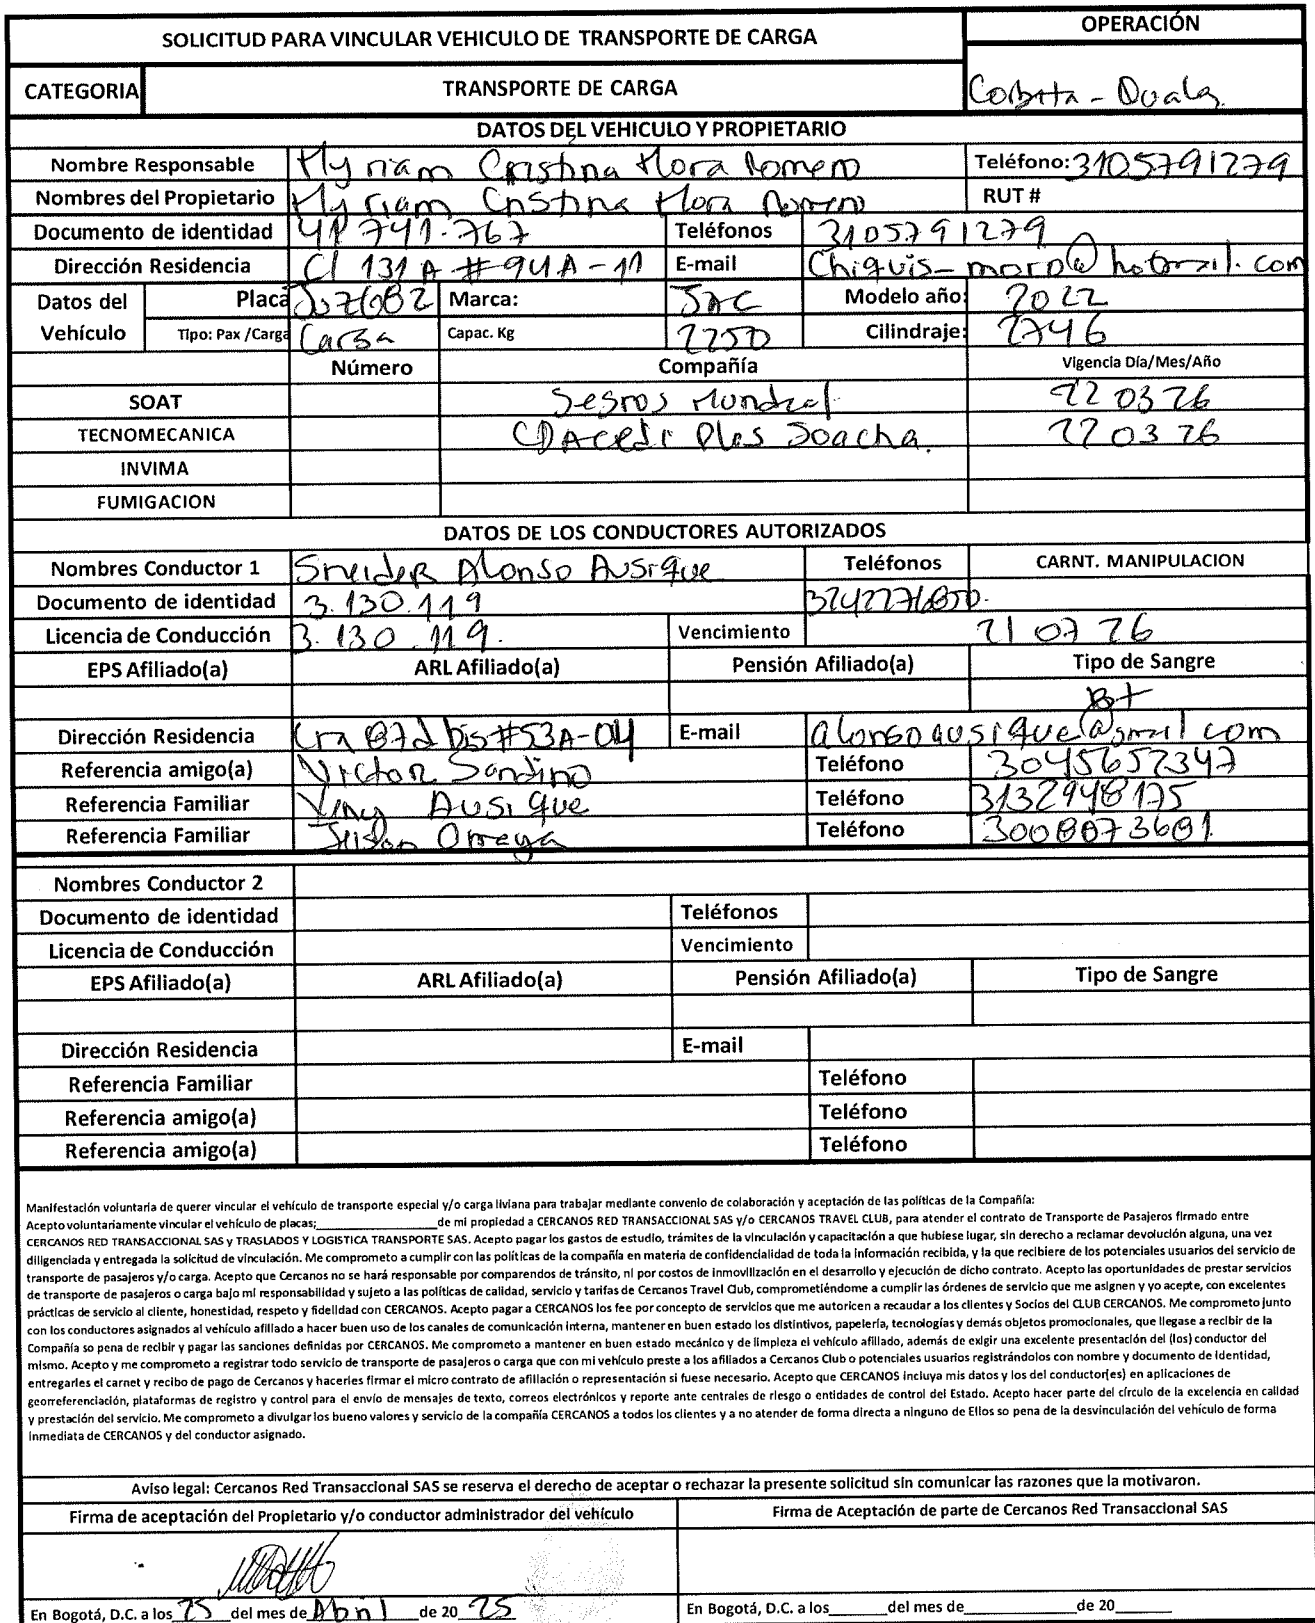 SOLICITUD PARA VINCULAR VEHICULO DE TRANSPORTE DE CARGA
OPERACIÓN
CATEGORIA TRANSPORTE DE CARGA
DATOS DEL VEHICULO Y PROPIETARIO
Nombre Responsable Myriam Cristina Mora Romero Teléfono: 3105791279
Nombres del Propietario Myriam Cristina Mora Romero RUT #
Documento de identidad 41 741.767 Teléfonos 3105791279
Dirección Residencia Cl 131A #94A-11 E-mail Chiquis_moro@hotmail.com
Datos del Vehículo Placa Marca: JAC Modelo año: 2022
Tipo: Pax /Carga Carga Capac. Kg 2250 Cilindraje: 2746
Número Compañía Vigencia Día/Mes/Año
SOAT Seguros Mundial 22 03 26
TECNOMECANICA CDA Plas Soacha. 22 03 26
INVIMA
FUMIGACION
DATOS DE LOS CONDUCTORES AUTORIZADOS
Nombres Conductor 1 Sneider Alonso Ausique Teléfonos CARNT. MANIPULACION
Documento de identidad 3.130.119
Licencia de Conducción 3.130.119. Vencimiento 21 07 26
EPS Afiliado(a) ARL Afiliado(a) Pensión Afiliado(a) Tipo de Sangre
B+
Dirección Residencia Cra 87d bis #53A-04 E-mail alonsoausique@gmail com
Referencia amigo(a) Victor Sandino Teléfono 3045652347
Referencia Familiar Ausique Teléfono 3132948175
Referencia Familiar Teléfono 3008073681
Nombres Conductor 2
Documento de identidad Teléfonos
Licencia de Conducción Vencimiento
EPS Afiliado(a) ARL Afiliado(a) Pensión Afiliado(a) Tipo de Sangre
Dirección Residencia E-mail
Referencia Familiar Teléfono
Referencia amigo(a) Teléfono
Referencia amigo(a) Teléfono
Manifestación voluntaria de querer vincular el vehículo de transporte especial y/o carga liviana para trabajar mediante convenio de colaboración y aceptación de las políticas de la Compañía:
Acepto voluntariamente vincular el vehículo de placas;____________________de mi propiedad a CERCANOS RED TRANSACCIONAL SAS y/o CERCANOS TRAVEL CLUB, para atender el contrato de Transporte de Pasajeros firmado entre
CERCANOS RED TRANSACCIONAL SAS y TRASLADOS Y LOGISTICA TRANSPORTE SAS. Acepto pagar los gastos de estudio, trámites de la vinculación y capacitación a que hubiese lugar, sin derecho a reclamar devolución alguna, una vez
diligenciada y entregada la solicitud de vinculación. Me comprometo a cumplir con las políticas de la compañía en materia de confidencialidad de toda la información recibida, y la que recibiere de los potenciales usuarios del servicio de
transporte de pasajeros y/o carga. Acepto que Cercanos no se hará responsable por comparendos de tránsito, ni por costos de inmovilización en el desarrollo y ejecución de dicho contrato. Acepto las oportunidades de prestar servicios
de transporte de pasajeros o carga bajo mi responsabilidad y sujeto a las políticas de calidad, servicio y tarifas de Cercanos Travel Club, comprometiéndome a cumplir las órdenes de servicio que me asignen y yo acepte, con excelentes
prácticas de servicio al cliente, honestidad, respeto y fidelidad con CERCANOS. Acepto pagar a CERCANOS los fee por concepto de servicios que me autoricen a recaudar a los clientes y Socios del CLUB CERCANOS. Me comprometo junto
con los conductores asignados al vehículo afiliado a hacer buen uso de los canales de comunicación interna, mantener en buen estado los distintivos, papelería, tecnologías y demás objetos promocionales, que llegase a recibir de la
Compañía so pena de recibir y pagar las sanciones definidas por CERCANOS. Me comprometo a mantener en buen estado mecánico y de limpieza el vehículo afiliado, además de exigir una excelente presentación del (los) conductor del
mismo. Acepto y me comprometo a registrar todo servicio de transporte de pasajeros o carga que con mi vehículo preste a los afiliados a Cercanos Club o potenciales usuarios registrándolos con nombre y documento de identidad,
entregarles el carnet y recibo de pago de Cercanos y hacerles firmar el micro contrato de afiliación o representación si fuese necesario. Acepto que CERCANOS incluya mis datos y los del conductor(es) en aplicaciones de
georreferenciación, plataformas de registro y control para el envío de mensajes de texto, correos electrónicos y reporte ante centrales de riesgo o entidades de control del Estado. Acepto hacer parte del círculo de la excelencia en calidad
y prestación del servicio. Me comprometo a divulgar los bueno valores y servicio de la compañía CERCANOS a todos los clientes y a no atender de forma directa a ninguno de Ellos so pena de la desvinculación del vehículo de forma
inmediata de CERCANOS y del conductor asignado.
Aviso legal: Cercanos Red Transaccional SAS se reserva el derecho de aceptar o rechazar la presente solicitud sin comunicar las razones que la motivaron.
Firma de aceptación del Propietario y/o conductor administrador del vehículo Firma de Aceptación de parte de Cercanos Red Transaccional SAS
En Bogotá, D.C. a los 25 del mes de Abril de 20 25 En Bogotá, D.C. a los______del mes de____________de 20______